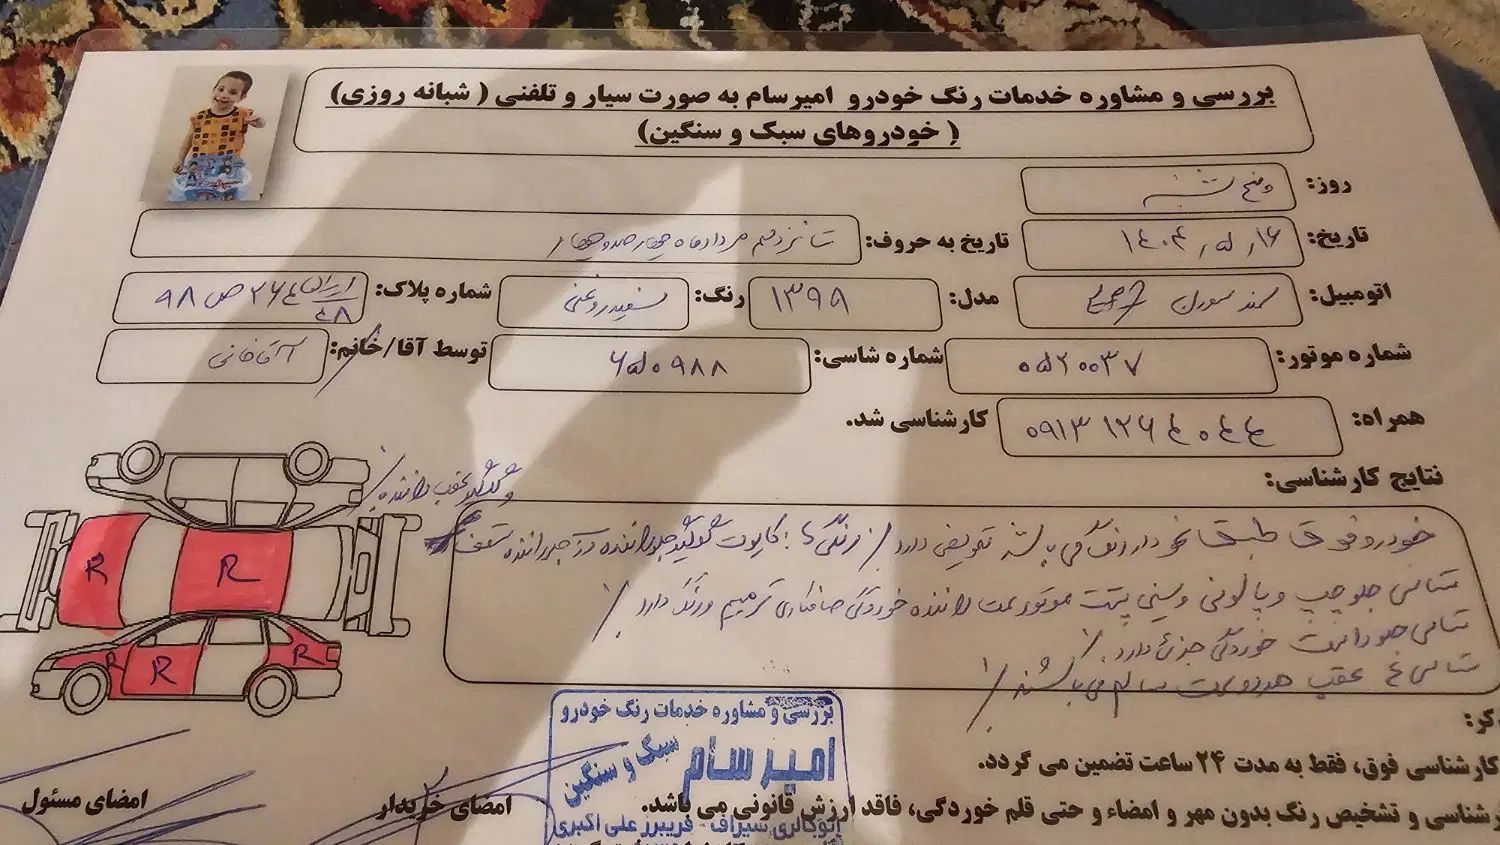 بررسی و مشاوره خدمات رنگ خودرو امیرسام به صورت سیار و تلفنی ( شبانه روزی)
( خودروهای سبک و سنگین)
روز: پنج شنبه
تاریخ: ۱۴۰۴,۵,۱۶ تاریخ به حروف: شانزدهم مردادماه چهارصدوچهار
اتومبیل: سمند سورن مدل: ۱۳۹۹ رنگ: سفید روغنی شماره پلاک: ۹۸ ص ۲۶۴ ایران
شماره موتور: ۰۵۲۰۰۳۷ شماره شاسی: ۶۵۰۹۸۸ توسط آقا/خانم: آقاخانی
همراه: ۰۹۱۳ ۱۲۶ ۴۰۴۴ کارشناسی شد.
نتایج کارشناسی:
و گلگیر عقب راننده
خودرو فوق طبق نمودار رنگ می باشد تعویضی دارد / رنگی ها : کاپوت گلگیر جلو راننده درب جلو راننده سقف
شاسی جلو چپ و پالونی وسینی پشت موتور سمت راننده خوردگی صافکاری ترمیم ورنگ دارد /
شاسی جلو راست خوردگی جزئی دارد /
شاسی عقب هردو سمت سالم می باشند /
R
R
R
R
R
ذکر:
کارشناسی فوق، فقط به مدت ۲۴ ساعت تضمین می گردد.
کارشناسی و تشخیص رنگ بدون مهر و امضاء و حتی قلم خوردگی، فاقد ارزش قانونی می باشد.
امضای خریدار
امضای مسئول
بررسی و مشاوره خدمات رنگ خودرو
امیرسام
سبک و سنگین
اتوگالری سیراف - فریبرز علی اکبری